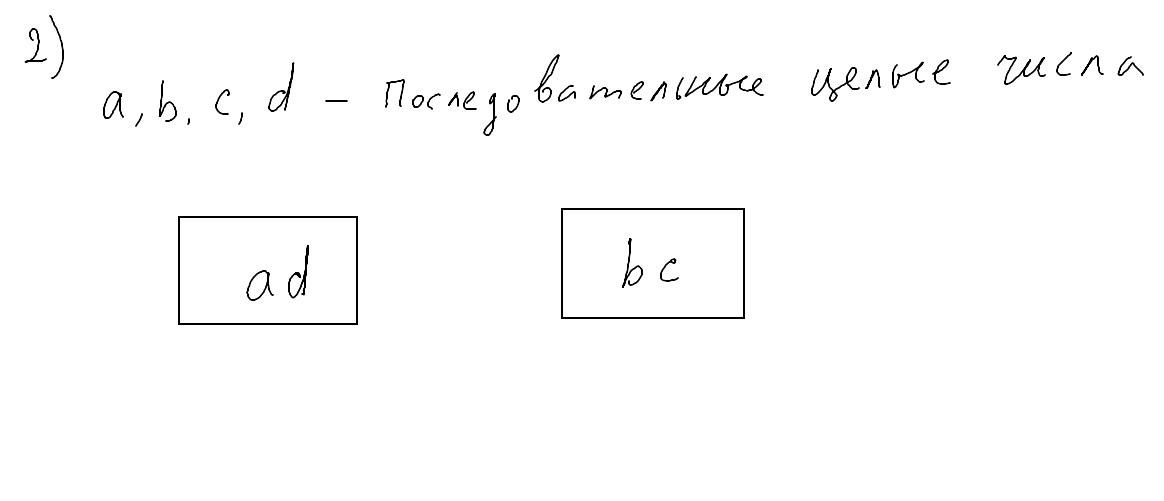 2)
a, b, c, d – Последовательные целые числа
ad
bc